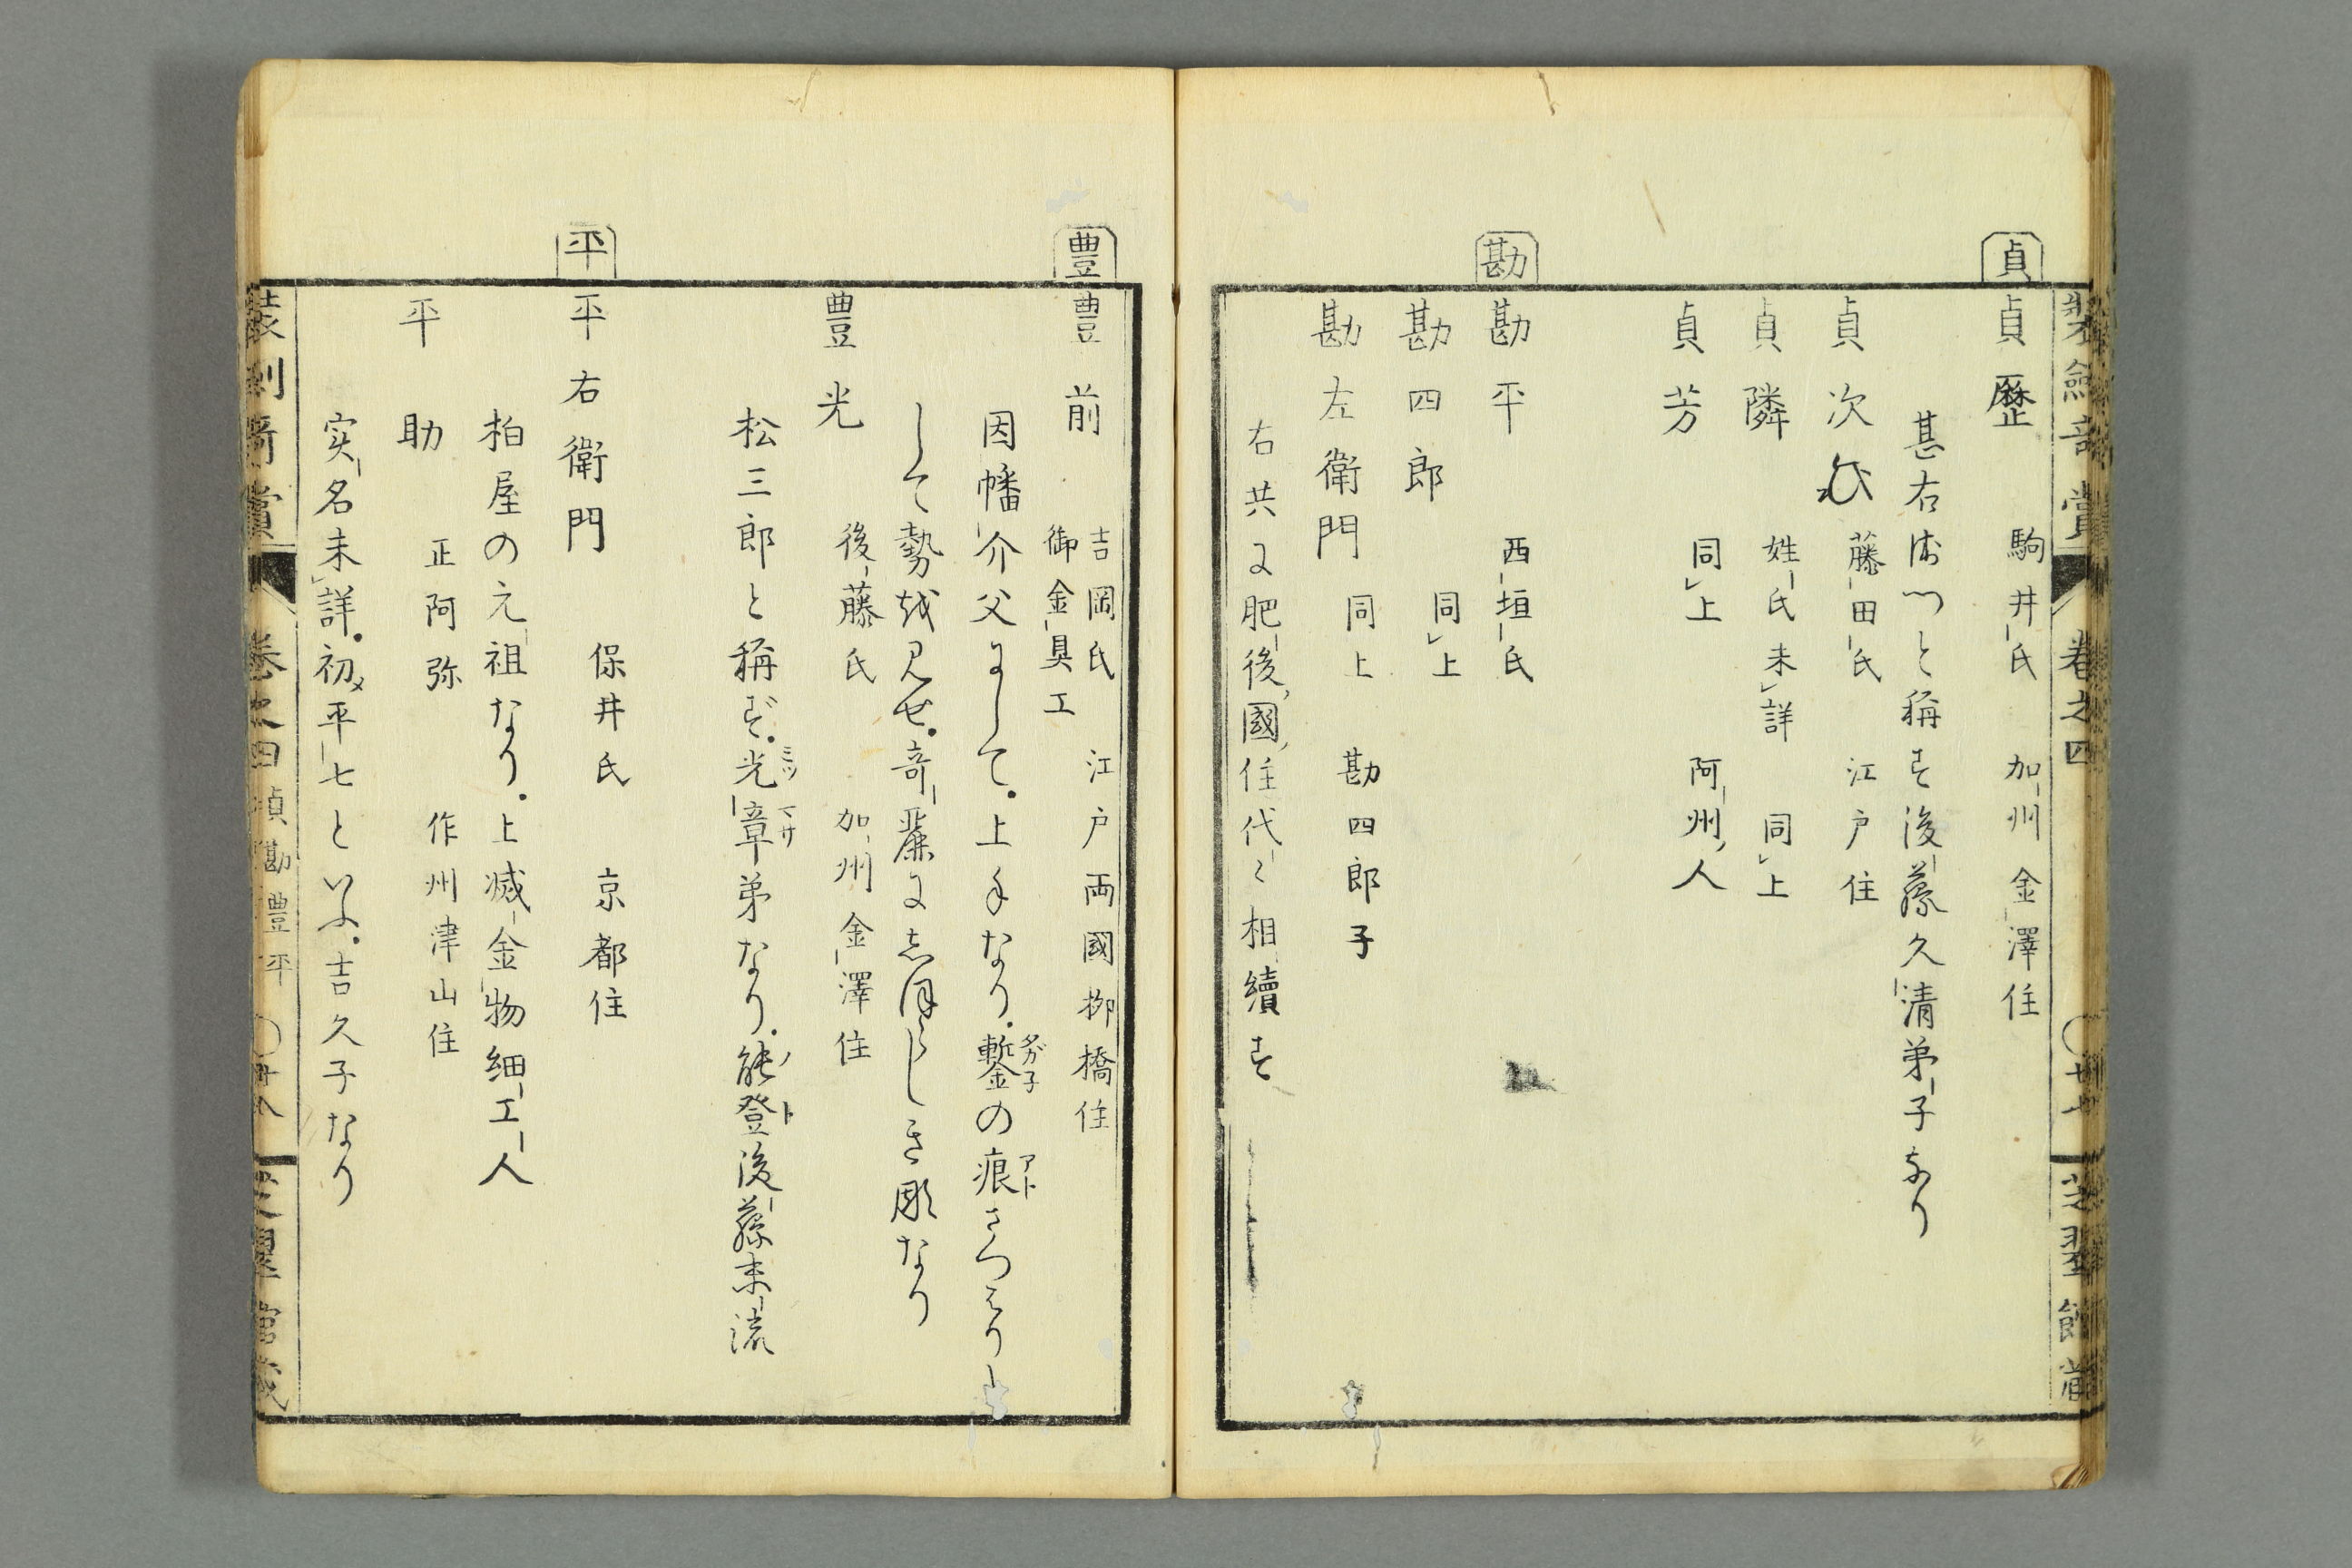 貞
貞歴 駒井氏 加州金澤住
甚右衛門と稱す後藤久清弟子なり
貞次 藤田氏 江戸住
貞隣 姓氏未詳 同上
貞芳 同上 阿州人
勘
勘平 西垣氏
勘四郎 同上
勘左衛門 同上 勘四郎子
右共に肥後國住代々相續す
卷之四
豊
豊前 吉岡氏 江戸両國柳橋住
御金具工
因幡介父にして。上手なり。鏨の痕
して勢を見せ。奇麗にしほらしき彫なり
豊光 後藤氏 加州金澤住
松三郎と稱ず。光章弟なり。能登後藤末流
平
平右衛門 保井氏 京都住
柏屋の元祖なり。上減金物細工人
平助 正阿弥 作州津山住
実名未詳。初メ平七といふ。吉久子なり
卷之四 貞勘豊平